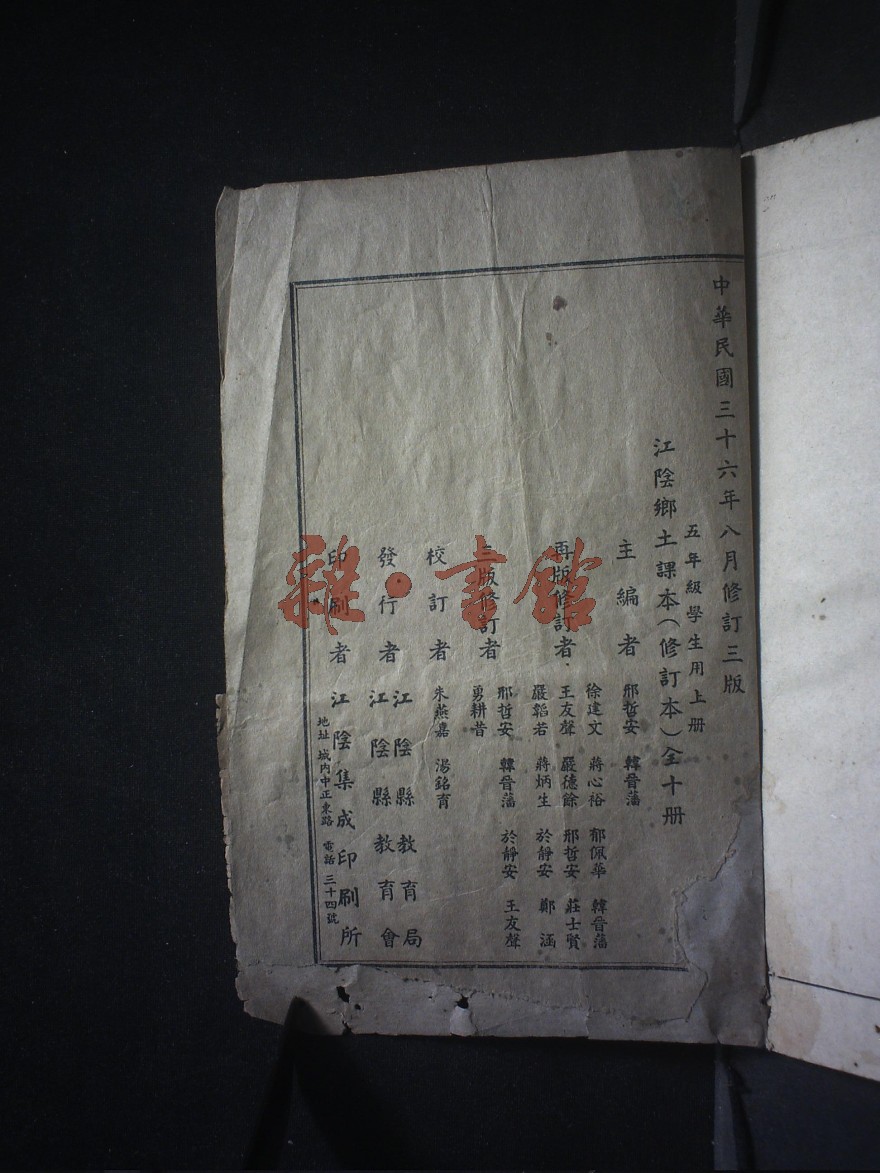 中華民國三十六年八月修訂三版
五年級學生用上册
江陰鄉土課本(修訂本)全十册
主編者 邢哲安 韓晉藩
再版修訂者 徐建文 蔣心裕 郁佩華 韓晉藩
王友聲 嚴德餘 邢哲安 莊士賢
嚴韜若 蔣炳生 於靜安 鄭涵
三版修訂者 邢哲安 韓晉藩 於靜安 王友聲
勇耕昔
校訂者 朱燕嘉 湯銘育
發行者 江陰縣教育局
江陰縣教育會
印刷者 江陰集成印刷所
地址 城内中正東路 電話 三十四號
雜·書館